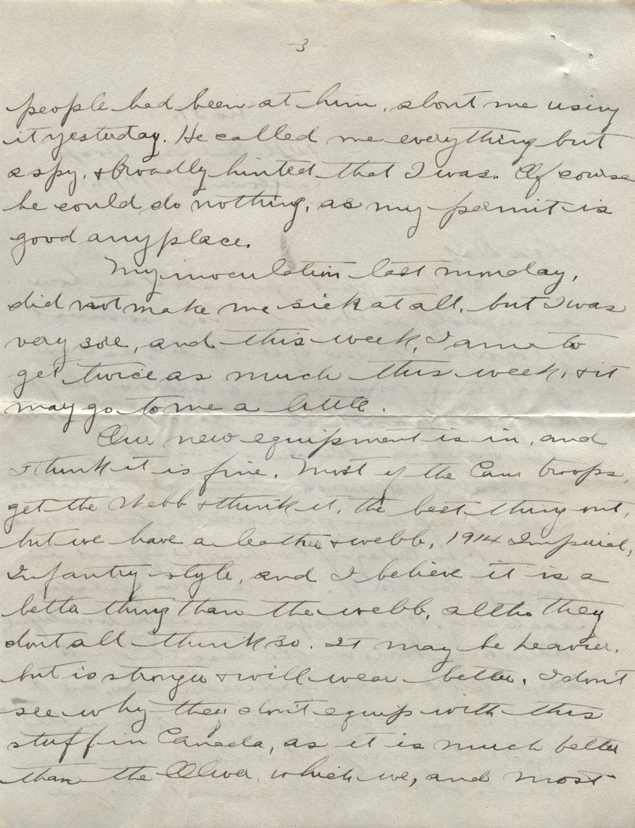 3
people had been at him, about me using
it yesterday. He called me everything but
a spy, & broadly hinted that I was. Of course
he could do nothing, as my permit is
good anyplace.
My inoculation last monday,
did not make me sick at all, but I was
very sore, and this week, I am to
get twice as much this week, & it
may go to me a little.
Our new equipment is in, and
I think it is fine. Most of the Can troops,
get the Webb & think it, the best thing out,
but we have a leather & webb, 1914 Imperial,
Infantry style, and I believe it is a
better thing than the webb, altho they
dont all think so. It may be heavier,
but is stronger & will wear better. I don't
see why they don't equip with this
stuff in Canada, as it is much better
than the Oliver, which we, and most